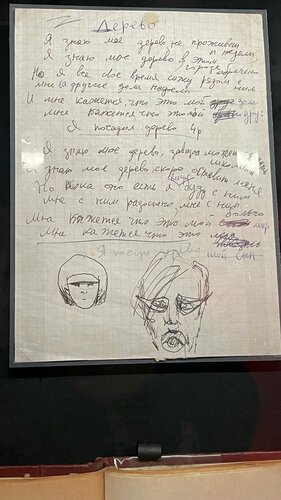 Дерево
Я знаю мое дерево не проживет
и недели
Я знаю мое дерево в этом
городе обречено
Но я все свое время сижу рядом с ним
мне все другие дела надоели
И мне кажется что это мой дом
мне кажется что это мой друг
Я посадил дерево 4р
Я знаю мое дерево, завтра может
сломать
Я знаю мое дерево скоро оставит меня
Но пока оно есть я буду с ним
мне с ним радостно мне с ним
больно
Мне кажется что это мой мир
мне кажется что это
мой сын
Я посадил дерево